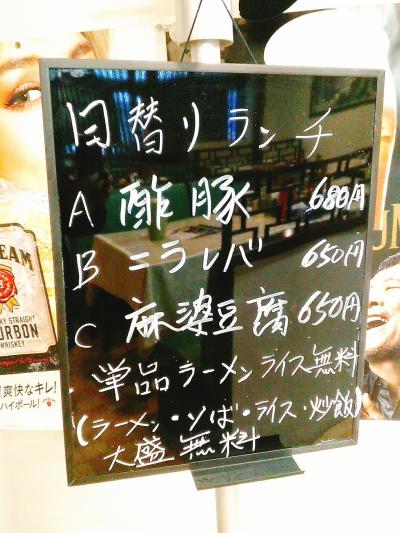 日替りランチ
A 酢豚 680円
B ニラレバ 650円
C 麻婆豆腐 650円
・単品ラーメンライス無料
(ラーメン・ソば・ライス・炒飯)
大盛無料
EAM
KY STRAIGHT
OURBON
WHISKEY
!爽快なキレ!
ハイボール!